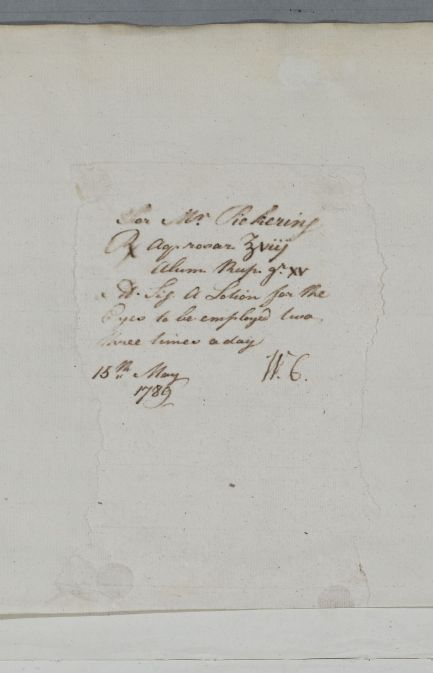 For Mr. Pickering
℞ Aq. rosar. ℥viij
Alum. Rup. gr. xv
M. Sig. A Lotion for the
Eyes to be employed two
three times a day
15th May W. C.
1789